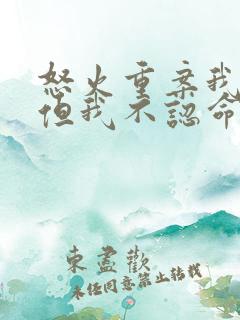 怒火重案我
但我不認命
東盡歡
未任同意禁止转载